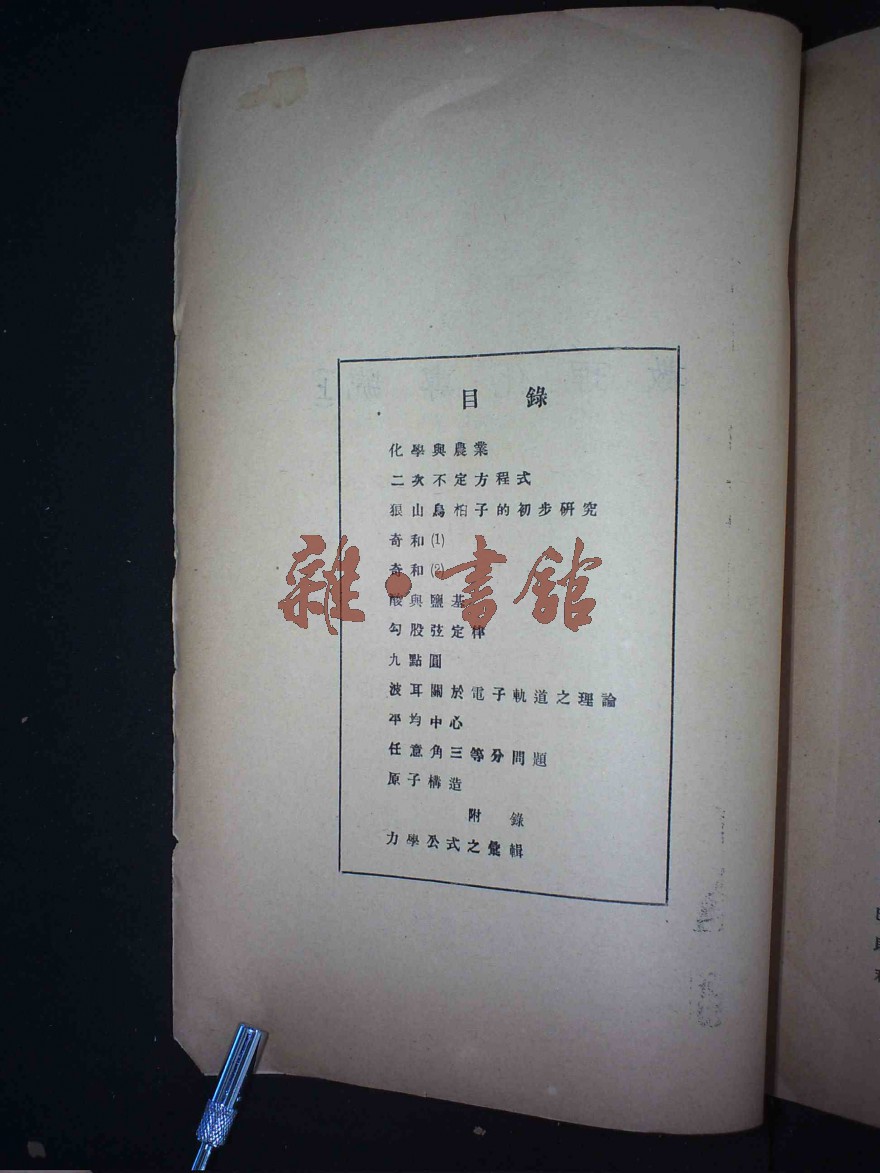 目錄
化學與農業
二次不定方程式
狼山烏桕子的初步硏究
奇和⑴
奇和⑵
酸與鹽基
勾股弦定律
九點圓
波耳關於電子軌道之理論
平均中心
任意角三等分問題
原子構造
附錄
力學公式之彙輯
雜·書館